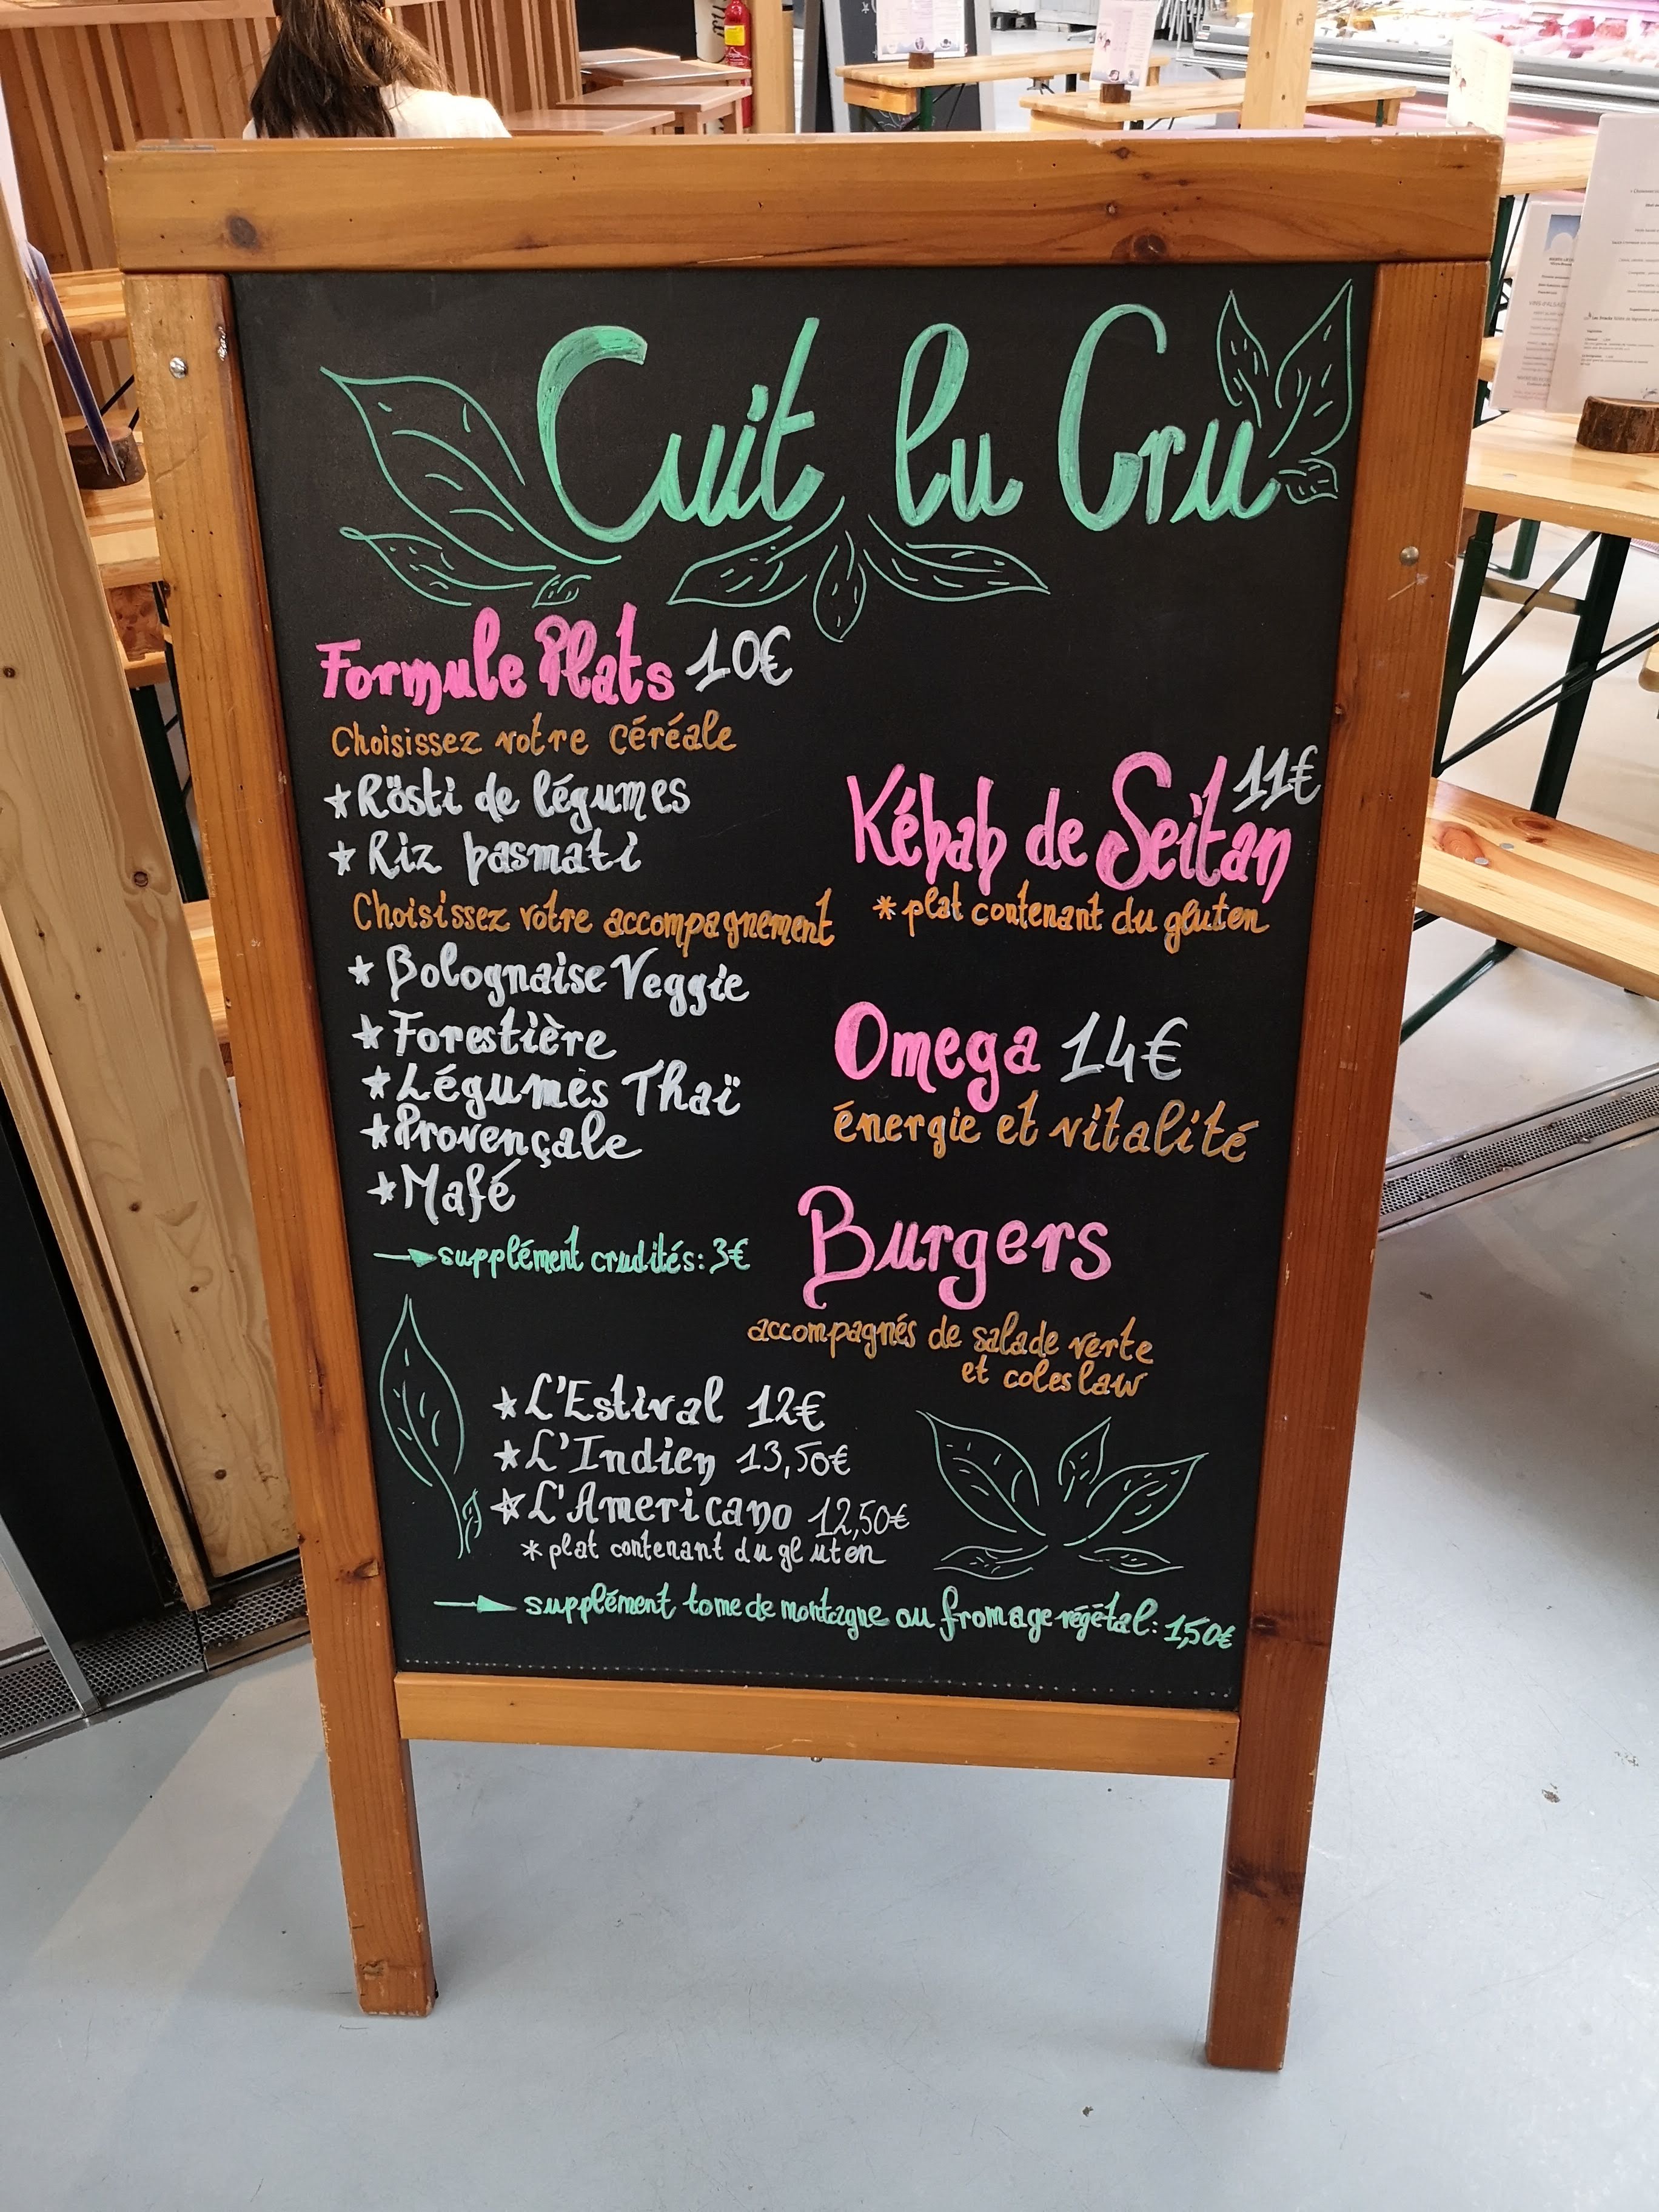 Cuit lu Cru
Formule Plats 10€
Choisissez votre céréale
*Rösti de légumes
*Riz basmati
Choisissez votre accompagnement
*Bolognaise Veggie
*Forestière
*Légumes Thaï
*Provençale
*Mafé
→supplément crudités: 3€
Kébab de Seitan 11€
*plat contenant du gluten
Omega 14€
énergie et vitalité
Burgers
accompagnés de salade verte
et coleslaw
*L'Estival 12€
*L'Indien 13,50€
*L'Americano 12,50€
*plat contenant du gluten
→supplément tome de montagne ou fromage végétal: 1,50€